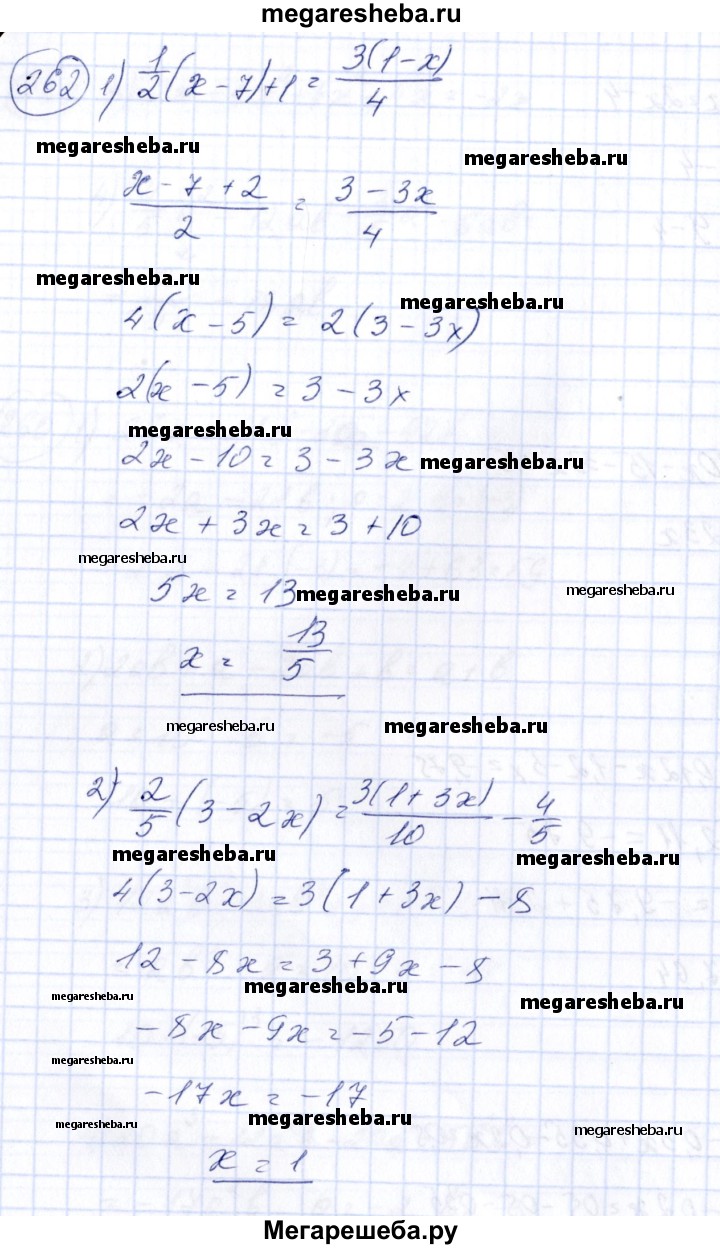 megaresheba.ru
262 1) 1/2 (x - 7) + 1 = 3(1-x)/4
megaresheba.ru
megaresheba.ru
(x - 7 + 2)/2 = (3 - 3x)/4
megaresheba.ru
megaresheba.ru
4(x - 5) = 2(3 - 3x)
2(x - 5) = 3 - 3x
megaresheba.ru
2x - 10 = 3 - 3x megaresheba.ru
2x + 3x = 3 + 10
megaresheba.ru
5x = 13 megaresheba.ru megaresheba.ru
x = 13/5
megaresheba.ru megaresheba.ru
2) 2/5 (3 - 2x) = 3(1 + 3x)/10 - 4/5
megaresheba.ru megaresheba.ru
4(3 - 2x) = 3(1 + 3x) - 8
12 - 8x = 3 + 9x - 8
megaresheba.ru megaresheba.ru megaresheba.ru
-8x - 9x = -5 - 12
megaresheba.ru
-17x = -17
megaresheba.ru megaresheba.ru megaresheba.ru
x = 1
Мегарешеба.ру